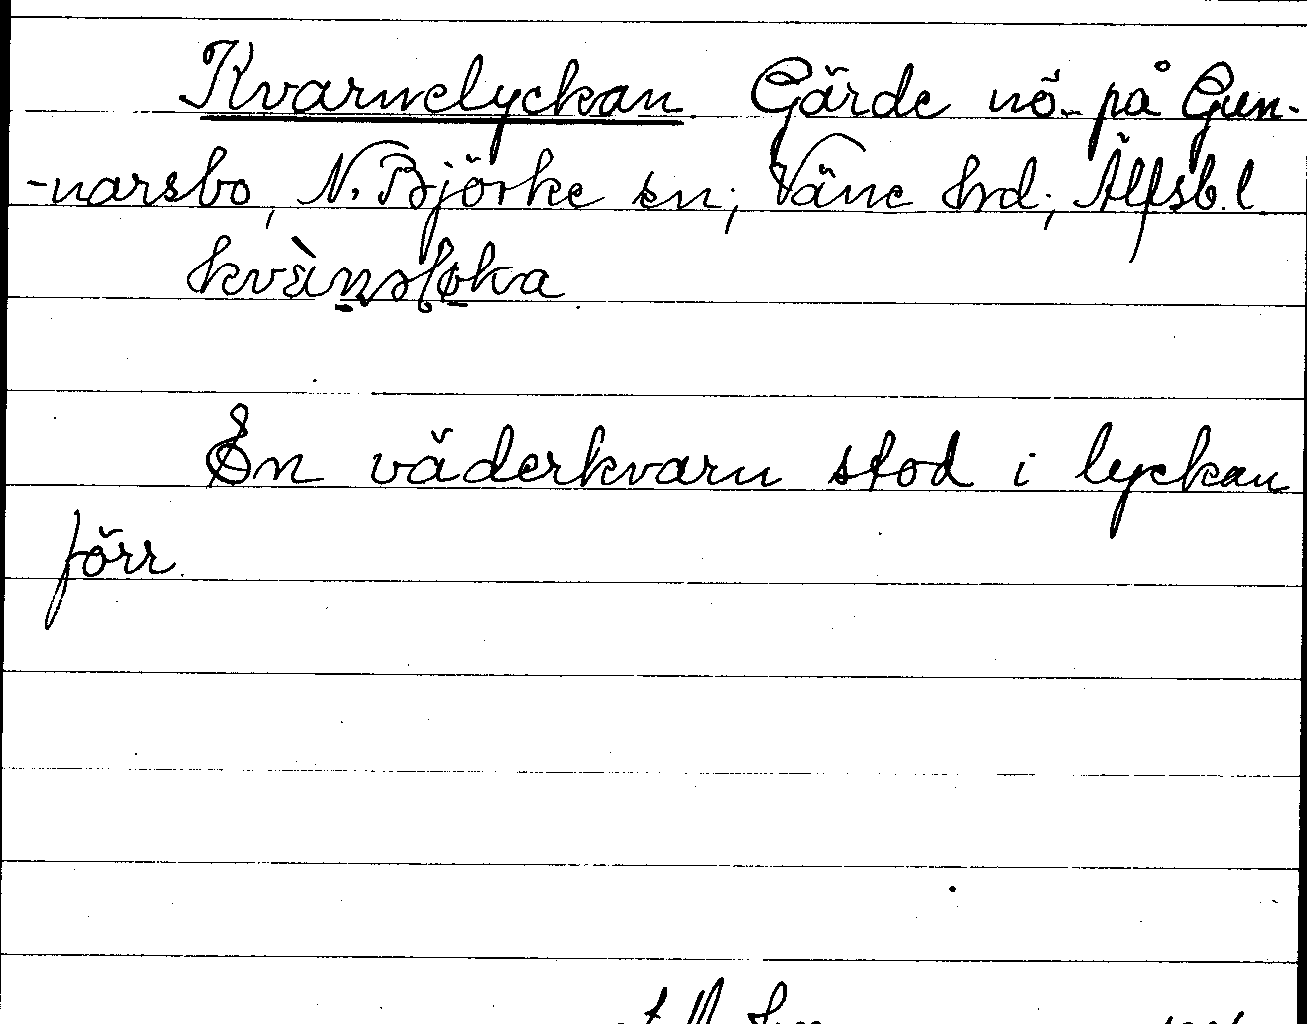 Kvarnelyckan. Gärde nö. på Gun-
-narsbo, N. Björke sn; Väne hd; Älfsb. l.
En väderkvarn stod i lyckan
förr.